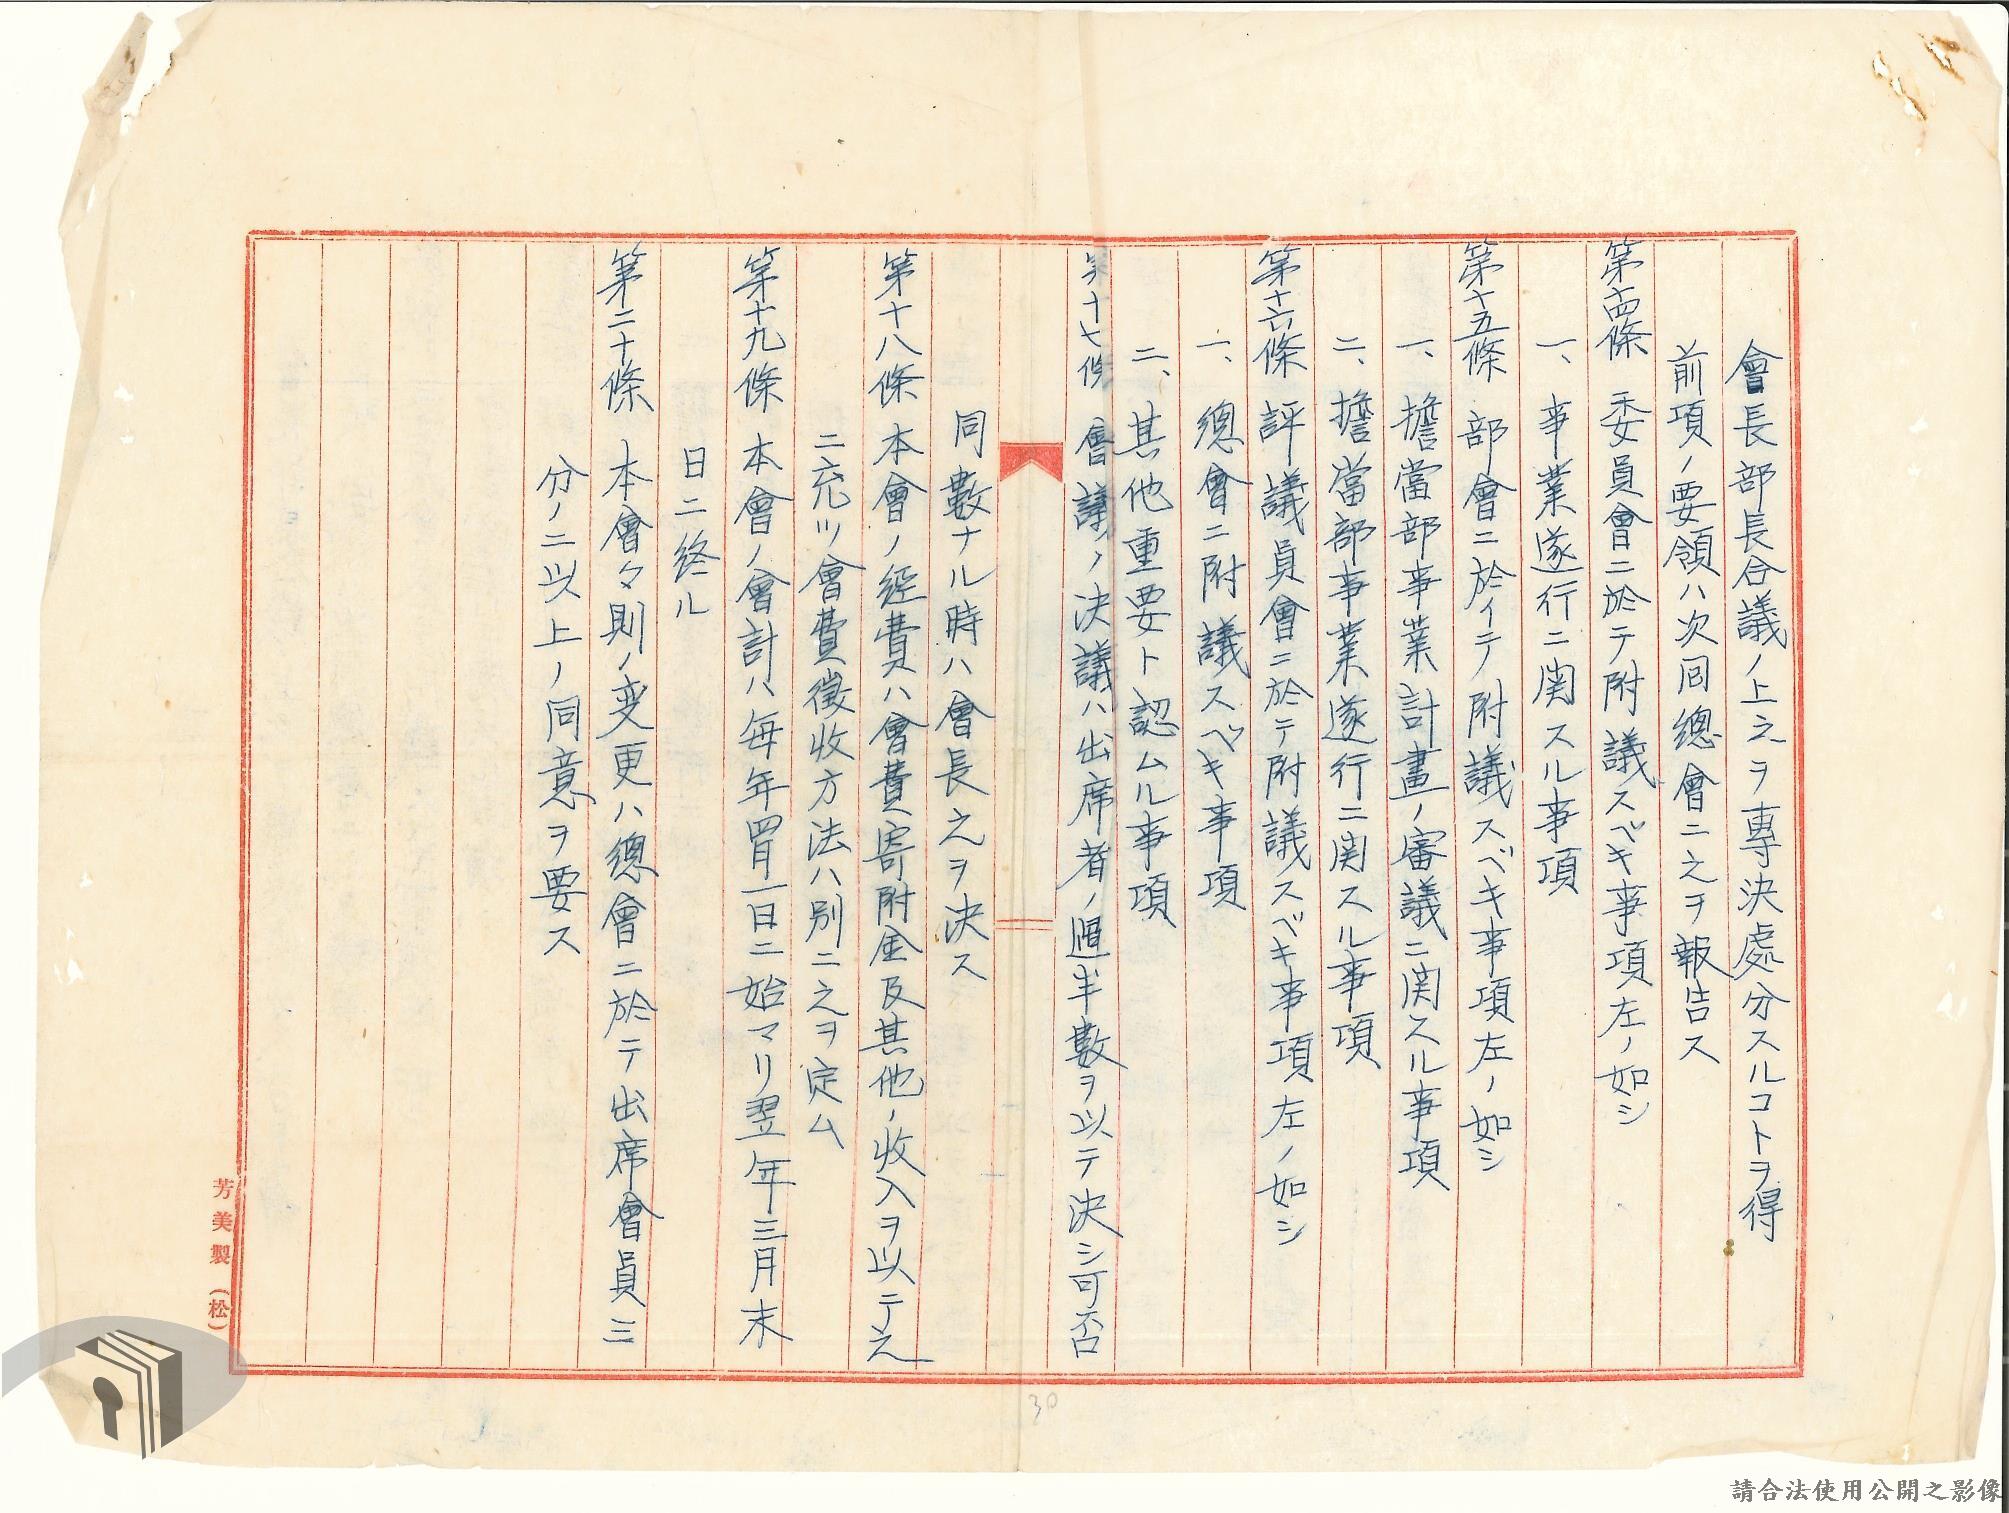 會長部長合議ノ上之ヲ專決處分スルコトヲ得
前項ノ要領ハ次回總會ニ之ヲ報告ス
第十四條 委員會ニ於テ附議スベキ事項左ノ如シ
一、事業遂行ニ関スル事項
第十五條 部會ニ於イテ附議スベキ事項左ノ如シ
一、擔當部事業計畫ノ審議ニ関スル事項
二、擔當部事業遂行ニ関スル事項
第十六條 評議員會ニ於テ附議スベキ事項左ノ如シ
一、總會ニ附議スベキ事項
二、其他重要ト認ムル事項
第十七條 會議ノ決議ハ出席者ノ過半數ヲ以テ決シ可否
同數ナル時ハ會長之ヲ決ス
第十八條 本會ノ経費ハ會費寄附金及其他ノ收入ヲ以テ之
ニ充ツ會費徴收方法ハ別ニ之ヲ定ム
第十九條 本會ノ會計ハ每年四月一日ニ始マリ翌年三月末
日ニ終ル
第二十條 本會々則ノ変更ハ總會ニ於テ出席會員三
分ノ二以上ノ同意ヲ要ス
芳美製(松)
30
請合法使用公開之影像